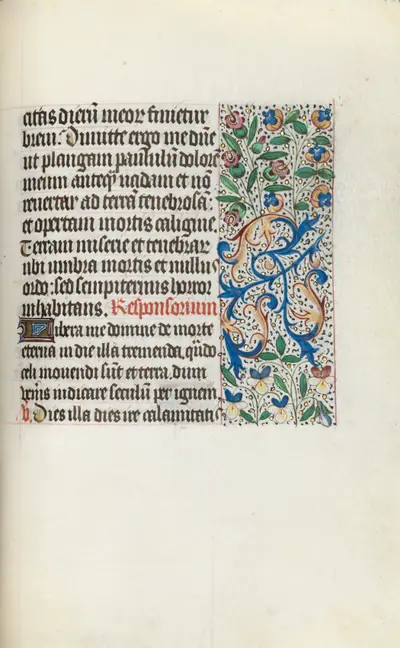 citas dierũ meor finietur
breui. Dimitte ergo me dñe
ut plangam paululũ dolorẽ
meum anteq̃ uadam et nõ
reuertar ad terrã tenebrosã
et opertam mortis caligine
Terram miserie et tenebrar
ubi umbra mortis et nullus
ordo: sed sempiternus horror
inhabitans. Responsorium
Libera me domine de morte
eterna in die illa tremenda, qñdo
celi mouendi sũt et terra, dum
veñis iudicare seculũ per ignem
v. Dies illa dies ire calamitatis